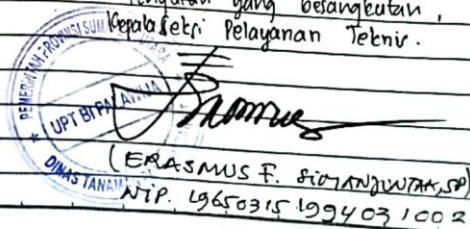 yang besangkutan,
Kepala Seksi Pelayanan Teknis.
PEMERINTAH PROVINSI SUM
UPT BI PALAWIJA
DINAS TANAM
(ERASMUS F. SIMANJUNTAK, SP)
NIP. 19650315 199403 1 002